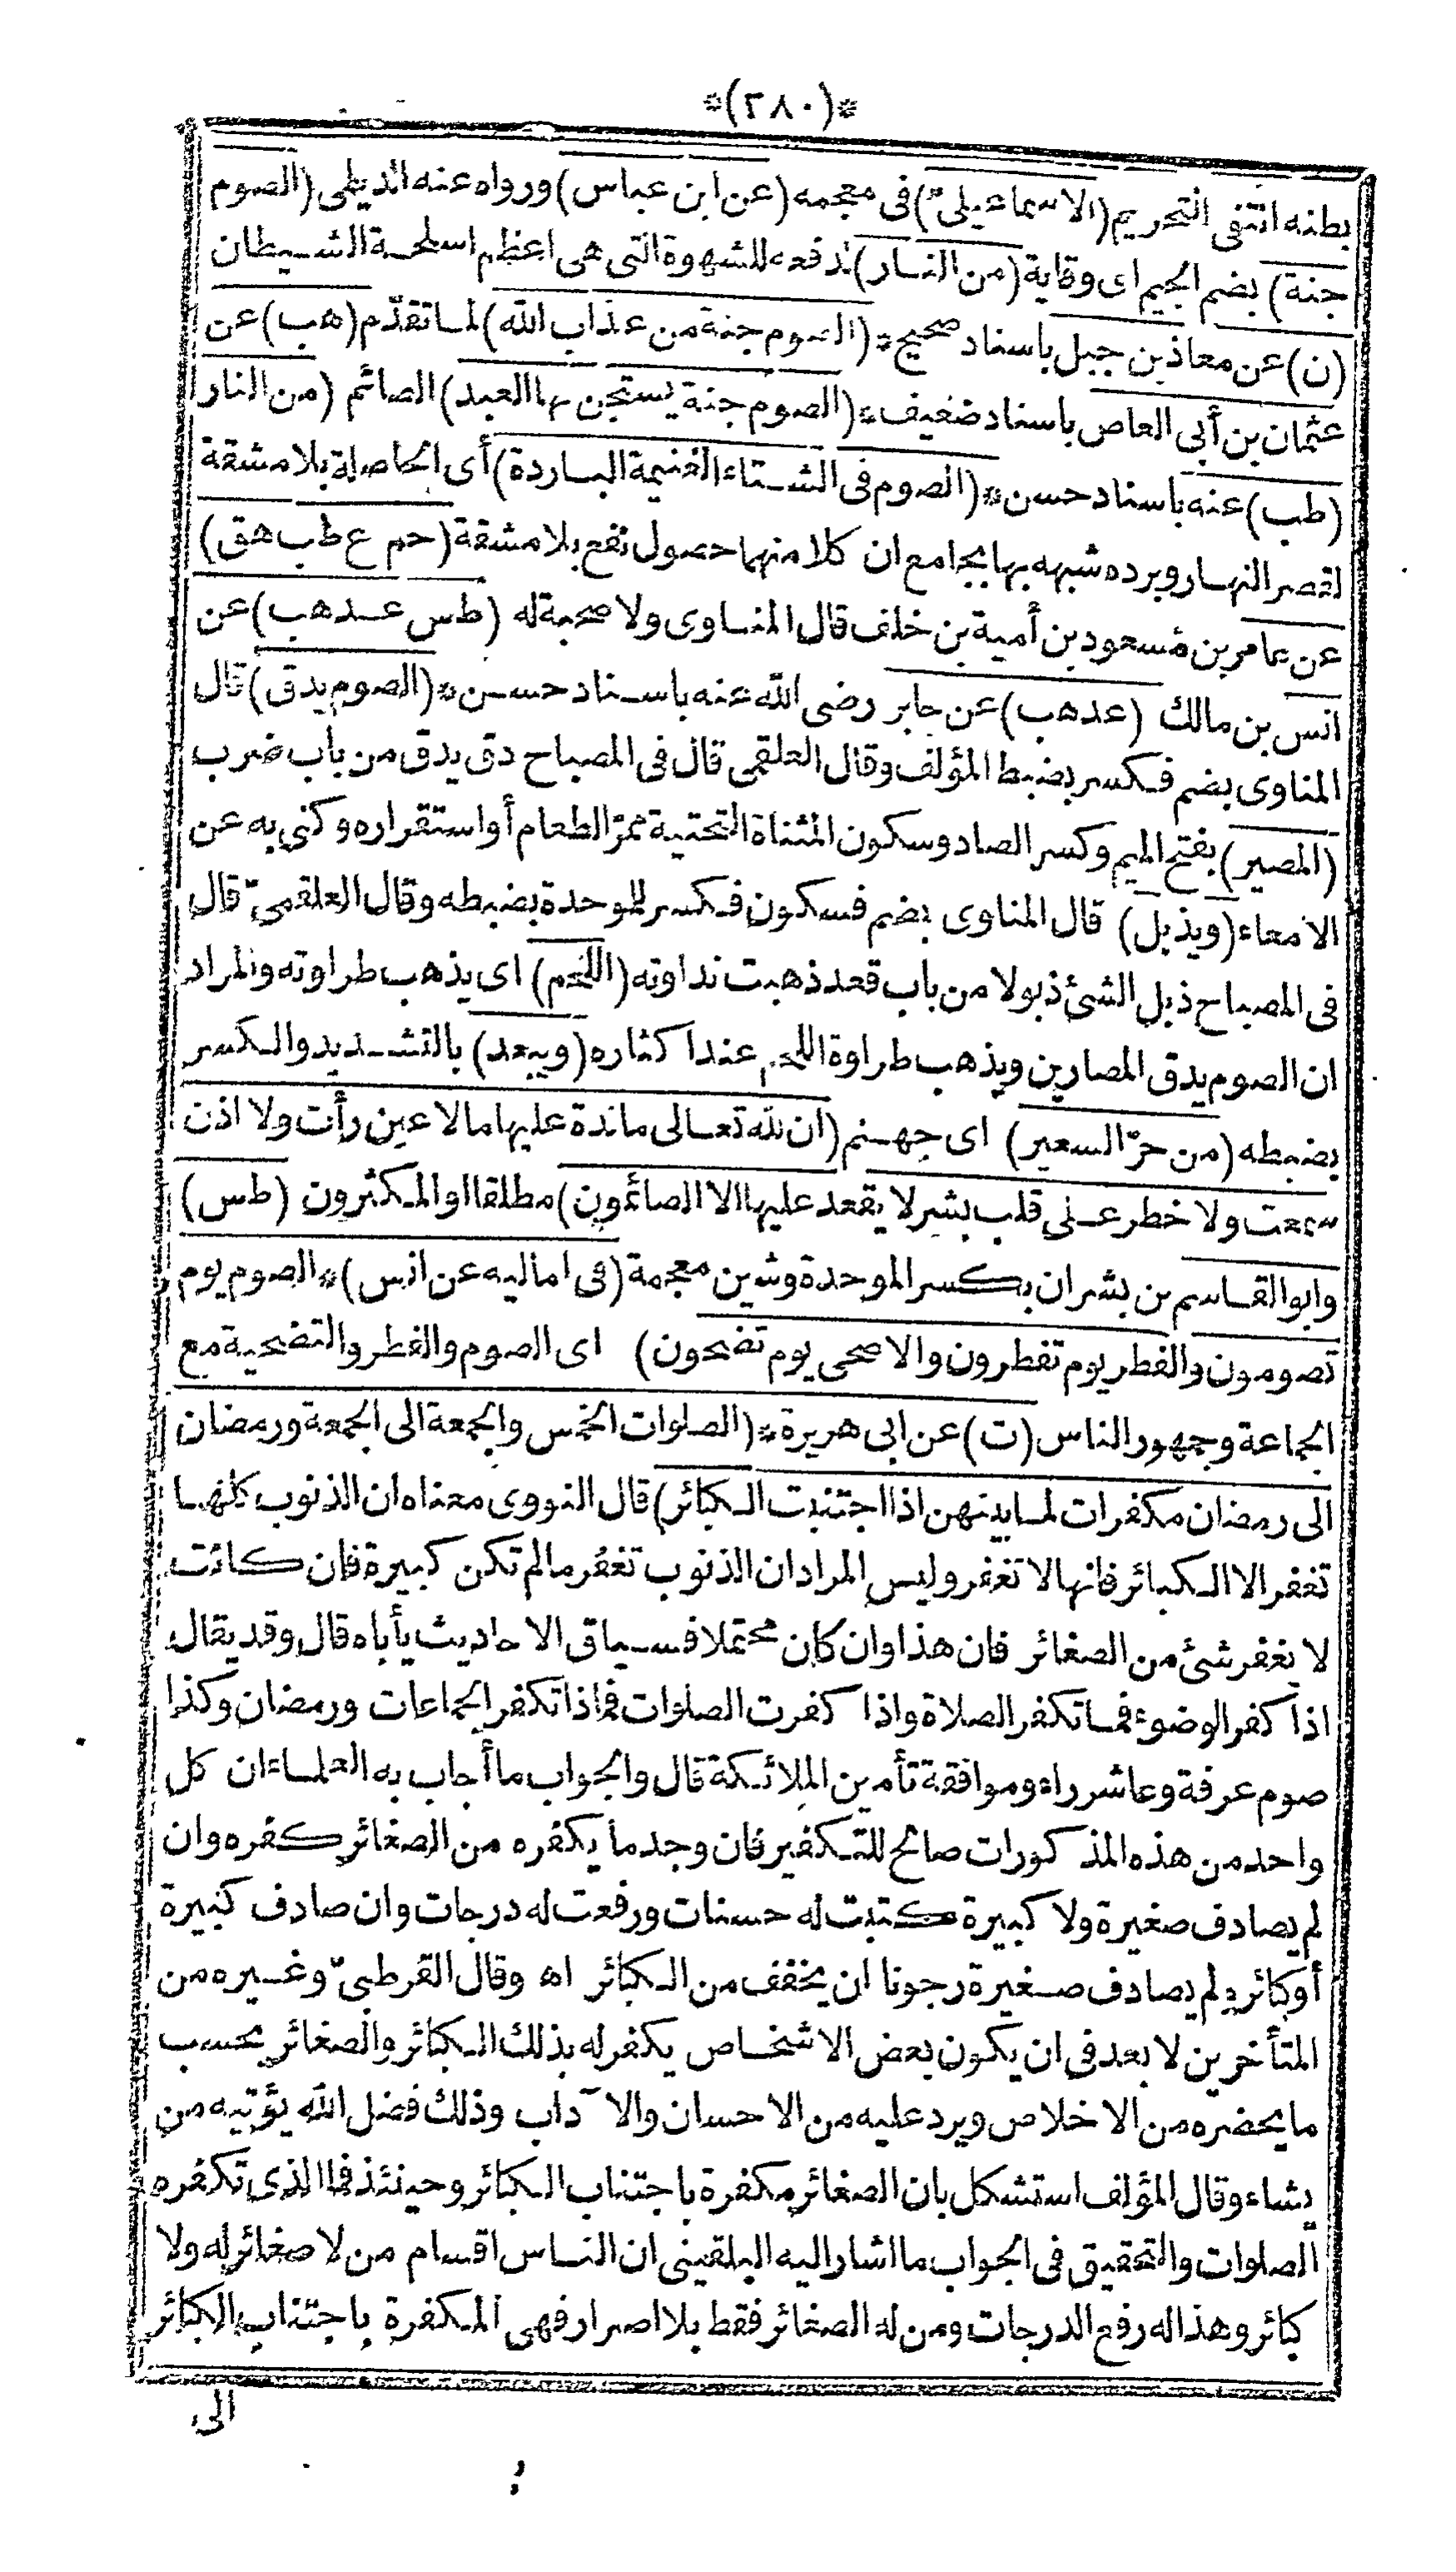 *(٣٨٠)*
بطنه انتفى التحريم (الاسماعيلي) في معجمه (عن ابن عباس) ورواه عنه الديلمى (الصوم
جنة) بضم الجيم اى وقاية (من النـار) لدفعه للشهوة التى هى اعظم اسلحـة الشـيطان
(ن) عن معاذ بن جبل باسناد صحيح * (الصوم جنة من عذاب الله) لمـا تقدّم (هب) عن
عثمان بن أبى العاص باسناد ضعيف * (الصوم جنة يستجن بها العبد) الصائم (من النار
(طب) عنه باسناد حسن * (الصوم فى الشـتاء الغنيمة البـاردة) أى الحاصلة بلا مشقة
لقصر النهـار وبرده شبهه بها بجامع ان كلا منهما حصول نفع بلا مشقة (حم ع طب هق)
عن عامر بن مسعود بن أمية بن خلف قال المنـاوى ولا صحبة له (طس عـد هب) عن
انس بن مالك (عد هب) عن جابر رضى الله عنه باسـناد حسـن * (الصوم يدق) قال
المناوى بضم فـكسر بضبط المؤلف وقال العلقمى قال فى المصباح دق يدق من باب ضرب
(المصير) بفتح الميم وكسر الصاد وسكون المثناة التحتية ممرّ الطعام أو استقراره وكنى به عن
الامعاء (ويذبل) قال المناوى بضم فسكون فـكسر للموحدة بضبطه وقال العلقمىّ قال
فى المصباح ذبل الشئ ذبولا من باب قعد ذهبت نداوته (اللحم) اى يذهب طراوته والمراد
ان الصوم يدق المصارين ويذهب طراوة اللحم عند اكثاره (ويبعد) بالتشـديد والـكسر
بضبطه (من حرّ السعير) اى جهـنم (ان لله تعـالى مائدة عليها ما لا عين رأت ولا اذن
سمعت ولا خطر عـلى قلب بشر لا يقعد عليها الا الصائمون) مطلقا او المـكثرون (طس)
وابو القـاسم بن بشران بكسر الموحدة وشين معجمة (فى اماليه عن انس) * الصوم يوم
تصومون والفطر يوم تفطرون والاضحى يوم تضحون) اى الصوم والفطر والتضحية مع
الجماعة وجمهور الناس (ت) عن ابى هريرة * (الصلوات الخمس والجمعة الى الجمعة ورمضان
الى رمضان مكفرات لمـا بينهن اذا اجتنبت الـكبائر) قال النووى معناه ان الذنوب كلهـا
تغفر الا الـكبائر فانها لا تغفر وليس المراد ان الذنوب تغفر ما لم تكن كبيرة فان كانت
لا يغفر شئ من الصغائر فان هذا وان كان محتملا فسـياق الاحاديث يأباه قال وقد يقال
اذا كفر الوضوء فمـا تكفر الصلاة واذا كفرت الصلوات فماذا تكفر الجماعات ورمضان وكذا
صوم عرفة وعاشوراء وموافقة تأمين الملائـكة قال والجواب ما أجاب به العلمـاء ان كل
واحد من هذه المذكورات صالح للتـكفير فان وجد ما يكفره من الصغائر كفره وان
لم يصادف صغيرة ولا كبيرة كتبت له حسنات ورفعت له درجات وان صادف كبيرة
أو كبائر ولم يصادف صـغيرة رجونا ان يخفف من الـكبائر اه وقال القرطبىّ وغـيره من
المتأخرين لا بعد فى ان يكون بعض الاشخـاص يكفر له بذلك الـكبائر والصغائر بحسب
ما يحضره من الاخلاص ويرد عليه من الاحسان والآداب وذلك فضل الله يؤتيه من
يشاء وقال المؤلف استشكل بان الصغائر مكفرة باجتناب الـكبائر وحينئذ فما الذى تكفره
الصلوات والتحقيق فى الجواب ما اشار اليه البلقينى ان النـاس اقسام من لا صغائر له ولا
كبائر وهذا له رفع الدرجات ومن له الصغائر فقط بلا اصرار فهى المـكفرة باجتناب الكبائر
الى